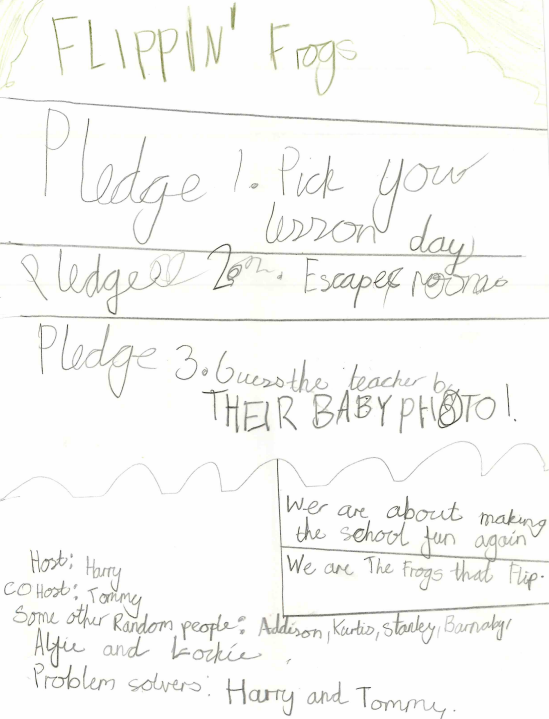 FLIPPIN' Frogs
Pledge 1. Pick your
lesson day
Pledge 2. Escape rooms
Pledge 3. Guess the teacher by
THEIR BABY PHOTO!
Wer are about making
the school fun again
We are The Frogs that Flip.
Host: Harry
CO Host: Tommy
Some other Random people: Addison, Kurtis, Stanley, Barnaby,
Alfie and Lockie
Problem solvers: Harry and Tommy.